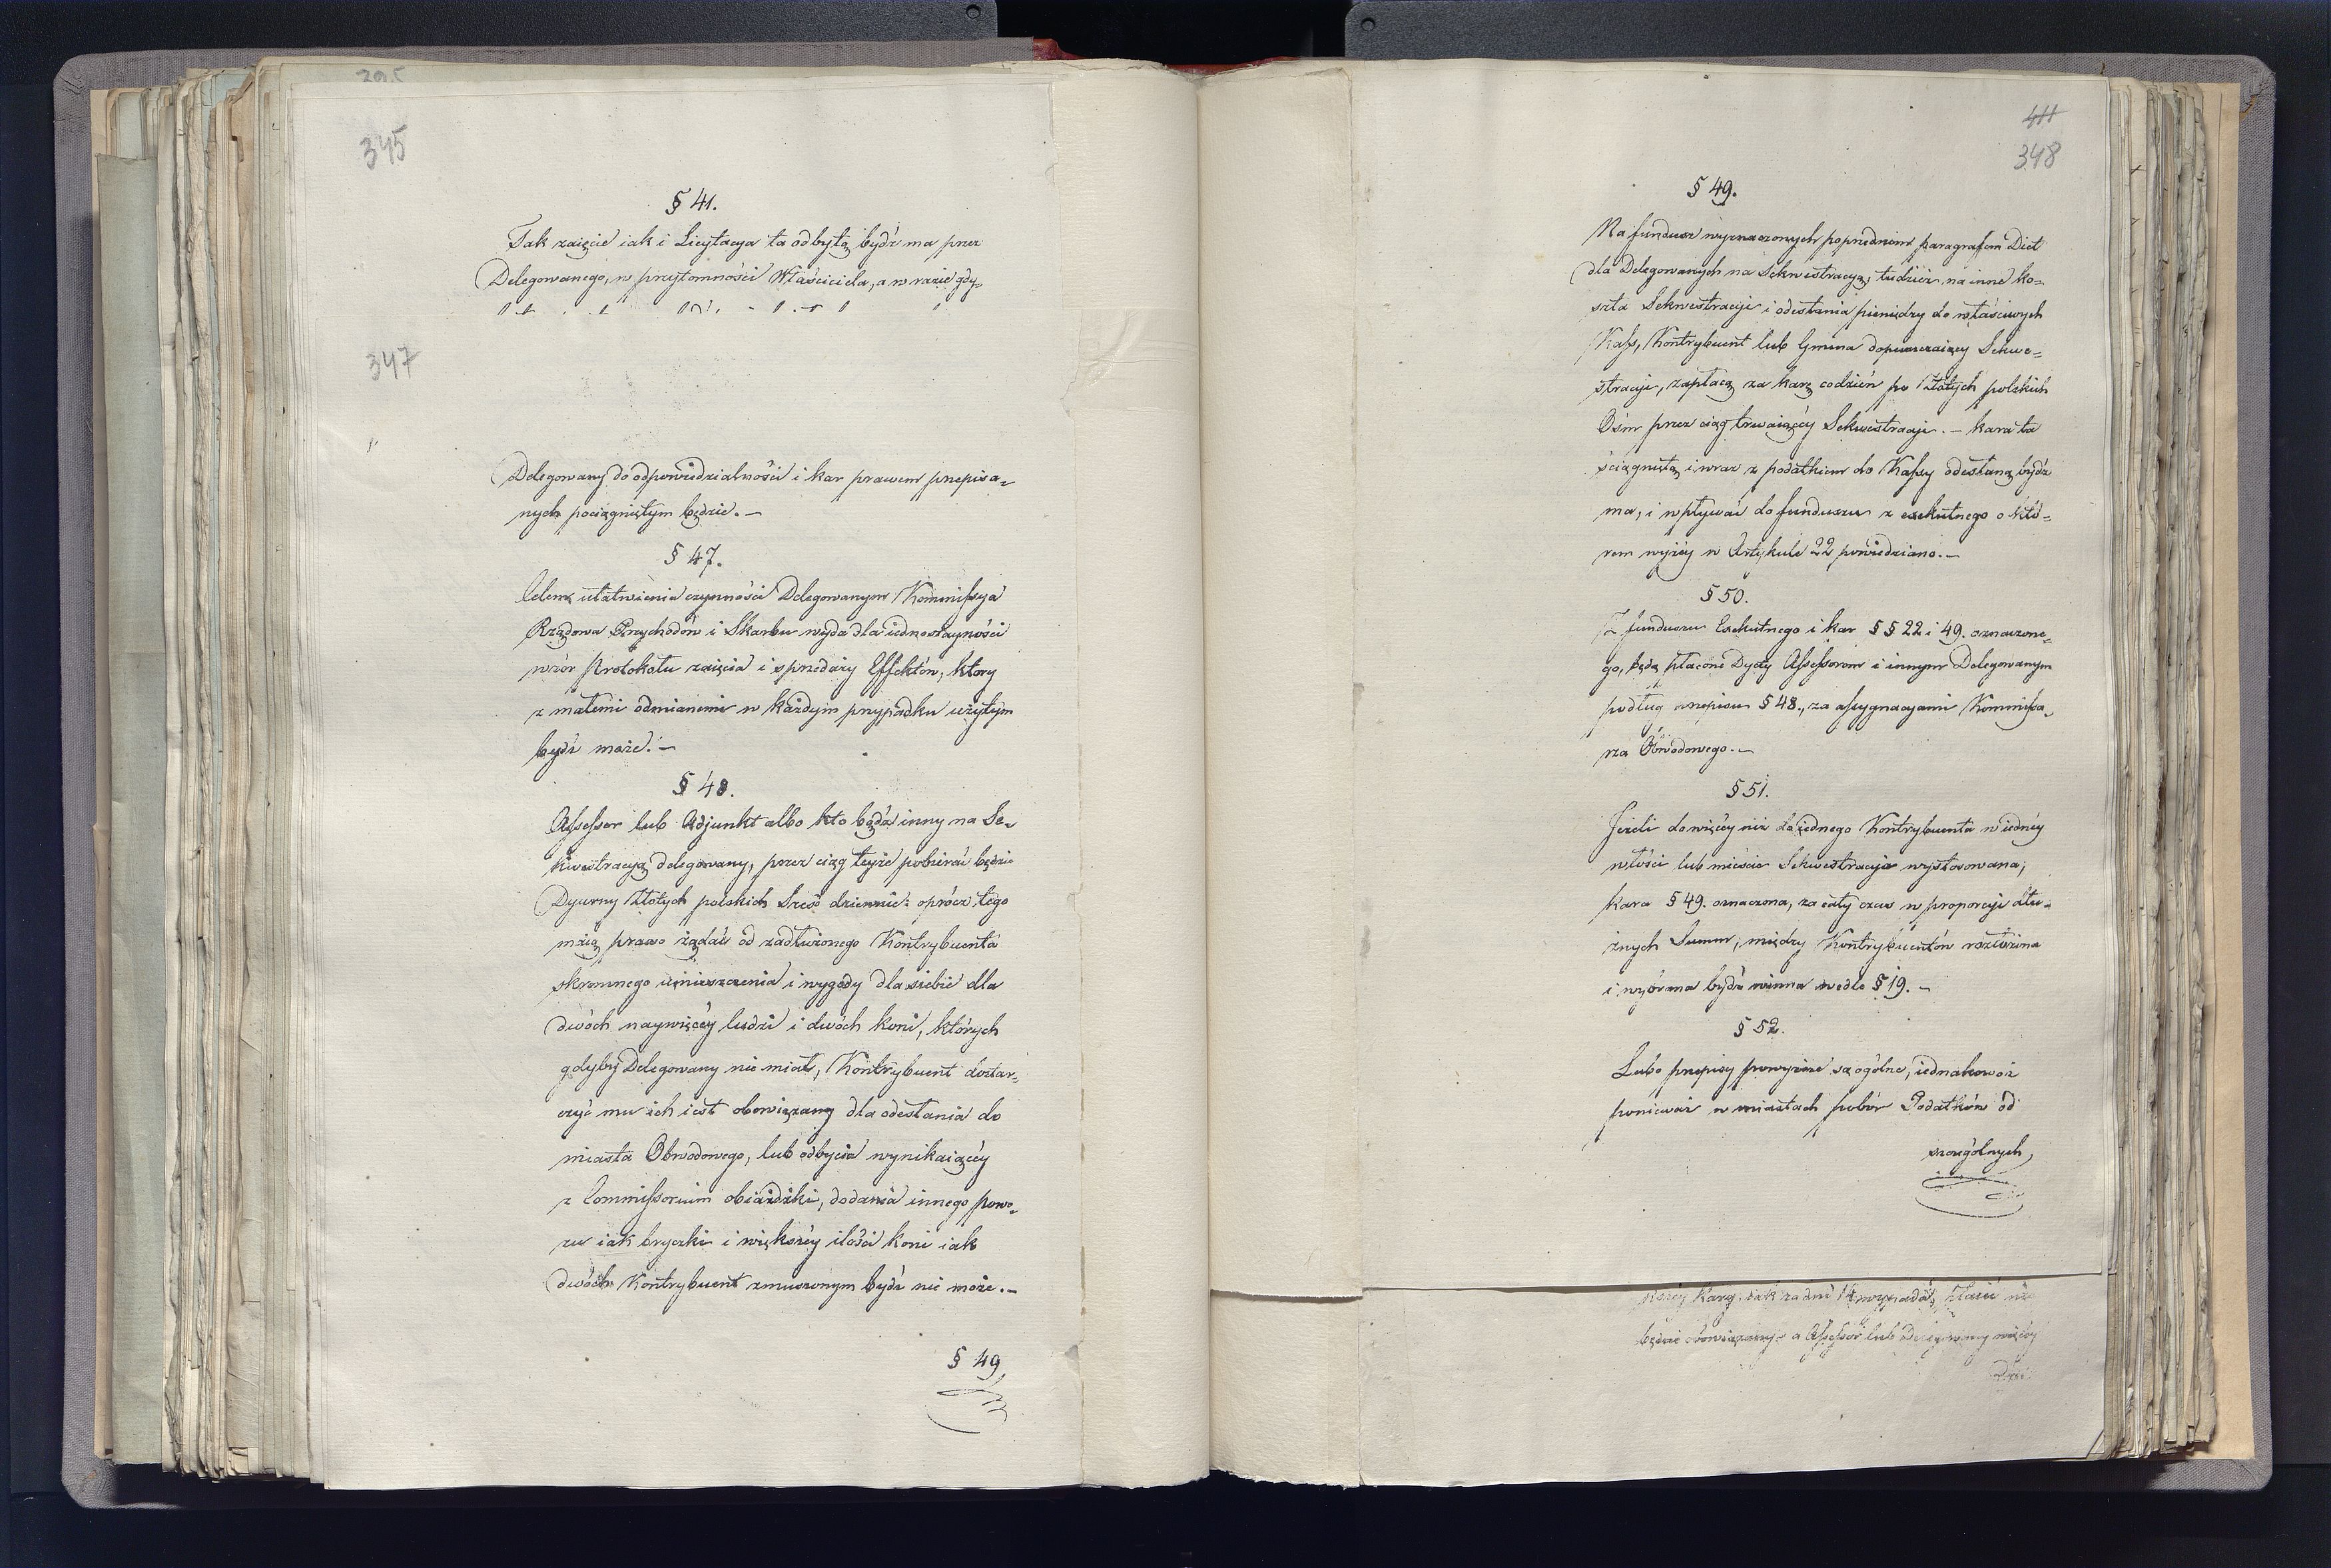 345
§ 41.
Tak zaięcie iak i Licytacya ta odbytą bydź ma przez
Delegowanego, w przytomności Właściciela, a w razie gdy-
347
Delegowany do odpowiedzialności i kar prawem przepisa-
nych pociągniętym będzie.-
§ 47.
Celem ułatwienia czynności Delegowanym Kommissya
Rządowa Przychodów i Skarbu wyda dla iednostayności
wzór Protokołu zaięcia i sprzedaży Effektów, ktory
z małemi odmianemi w każdym przypadku użytym
bydź może.-
§ 48.
Assessor lub Adjunkt albo kto bądź inny na Se-
kwestracyą delegowany, przez ciąg teyże pobierać będzie
Dyurny Złotych polskich Sześć dziennie: oprócz tego
maią prawo żądać od zadłużonego Kontrybuenta
skromnego umieszczenia i wygody dla siebie dla
dwóch naywięcéy ludzi i dwóch koni, których
gdyby Delegowany nie miał, Kontrybuent dostar-
czyć mu ich iest obowiązany dla odesłania do
miasta Obwodowego, lub odbycia wynikaiącéy
z Commissorium obiażdżki, dodania innego powo-
zu iak bryczki i większéy ilości koni iak
dwóch Kontrybuent zmuszonym bydź nie może.-
§ 49
411
348
§ 49.
Na fundusz wyznaczonych poprzednim paragrafem Diet
dla Delegowanych na Sekwestracyą, tudzież na inne ko-
szta Sekwestracyi i odesłania pieniędzy do właściwych
Kass, Kontrybuent lub Gmina dopuszczaiący Sekwe-
stracyi, zapłacą za karę codzień po Złotych polskich
Ośm przez ciąg trwaiącéy Sekwestracyi.- kara ta
ściągniętą i wraz z podatkiem do Kassy odesłaną bydź
ma, i wpływać do funduszu z exekutnego o któ-
rem wyżéy w Artykule 22 powiedziano.-
§ 50.
Z funduszu Exekutnego i kar § § 22 i 49. oznaczone-
go, będą płacone Dyety Assessorom i innym Delegowanym
podług przepisu § 48., za assygnacyami Kommissa-
rza Obwodowego.-
§ 51.
Jeżeli do więcéy niż do iednego Kontrybuenta w iednéy
włości lub mieście Sekwestracyia wystosowana,
kara § 49. oznaczona, za cały czas w proporcyi dłu-
żnych Summ, między Kontrybuentów rozłożona
i wybrana bydź winna wedle § 19.-
§ 52.
Lubo przepisy powyższe są ogólne, iednakowoż
ponieważ w miastach pobór Podatków od
szczególnych
kary, iak za dni 14 wypada,
będzie obowiązany a Assessor lub Delegowany więcéy